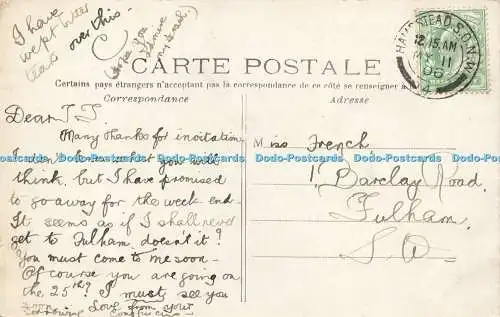 I have
wept bitter
tears over this -
hope you
admire
my head.
CARTE POSTALE
Certains pays étrangers n'acceptent pas la correspondance de ce côté se renseigner à
Correspondance
Adresse
HAMPSTEAD S.O. N.W.
12.15 AM
11
06
4
Dear T.T.
Many thanks for invitation
I don't know what you will
think, but I have promised
to go away for the week end -
It seems as if I shall never
get to Fulham doesn't it?
You must come to me soon -
Of course you are going on
the 25th? I must see you
soon. Love from your
sorrowing
Miss French
11 Barclay Road,
Fulham.
S.W.
Dodo-Postcards Dodo-Postcards Dodo-Postcards Dodo-Postcards Dodo-Postcards Dodo-Postcards